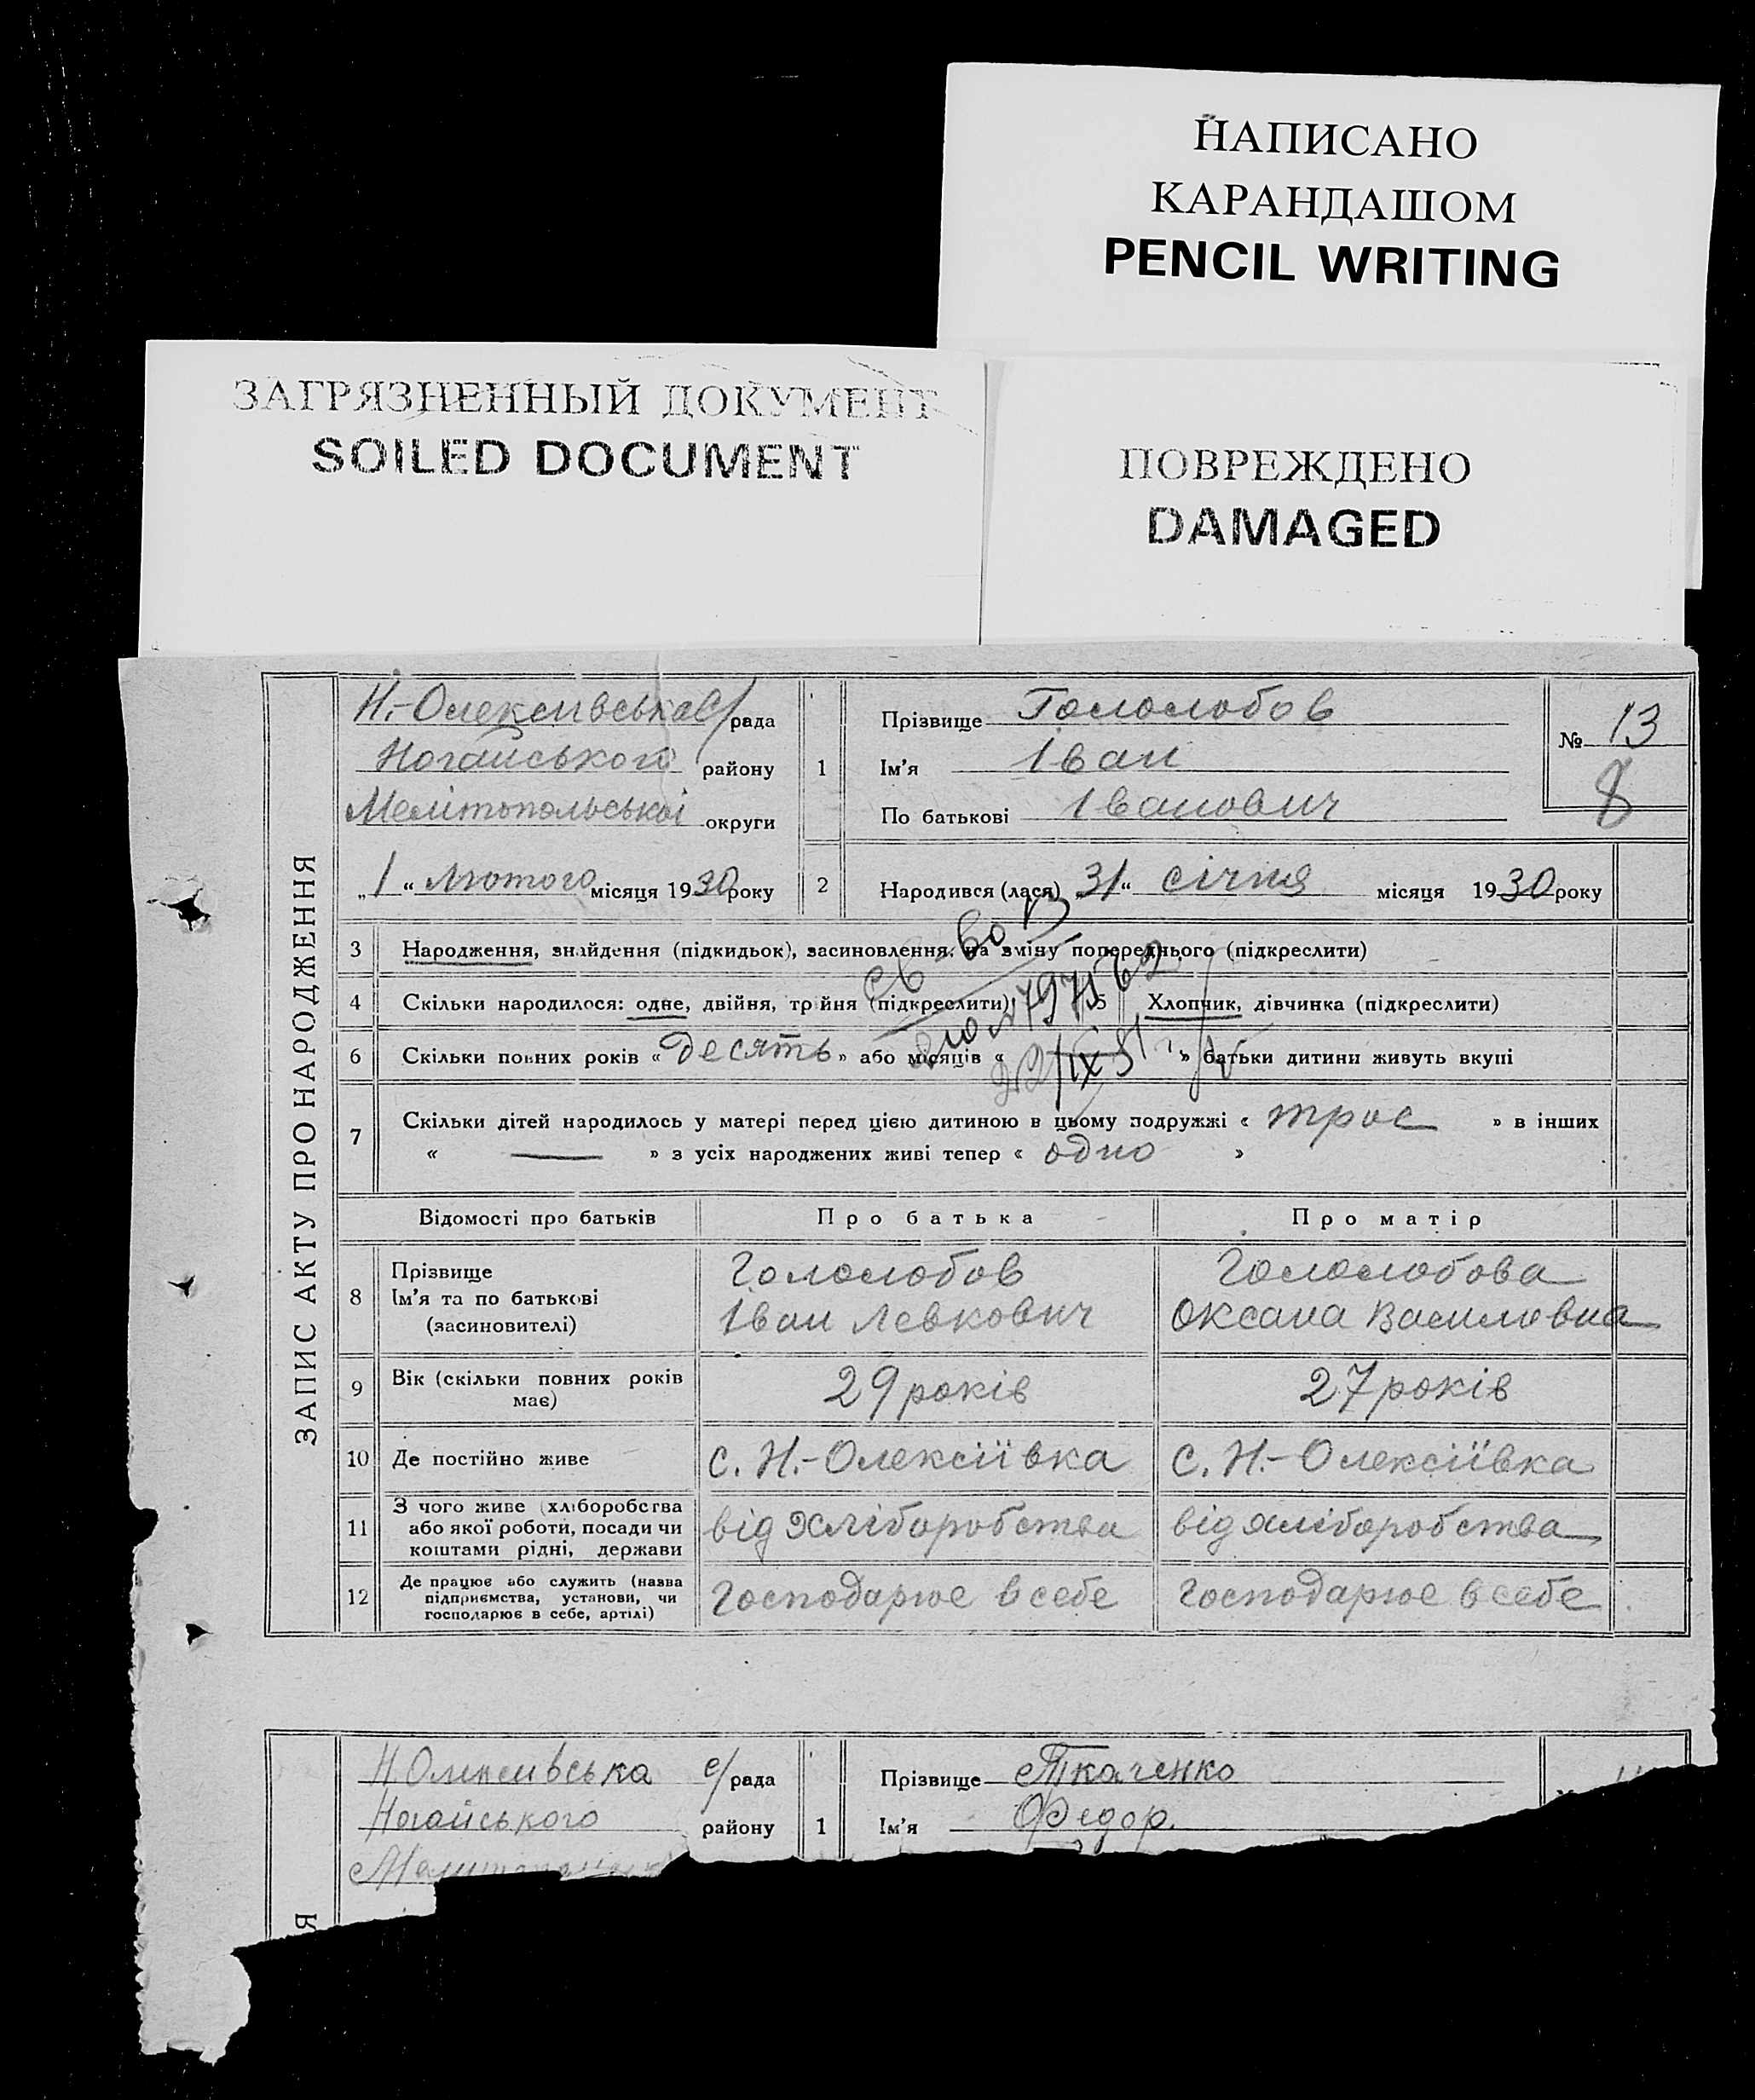 НАПИСАНО
КАРАНДАШОМ
PENCIL WRITING
ЗАГРЯЗНЕННЫЙ ДОКУМЕНТ
SOILED DOCUMENT
ПОВРЕЖДЕНО
DAMAGED
ЗАПИС АКТУ ПРО НАРОДЖЕННЯ
Н.-Олексіївська с/рада
Ногайського району
Мелітопольської округи
„1“ Лютого місяця 1930 року
1
Прізвище Гололобов
Ім'я Іван
По батькові Іванович
№ 13
8
2 Народився (лася) „31“ січня місяця 1930 року
3 Народження, знайдення (підкидьок), засиновлення, на зміну попереднього (підкреслити)
4 Скільки народилося: одне, двійня, трійня (підкреслити) 5 Хлопчик, дівчинка (підкреслити)
6 Скільки повних років «десять» або місяців « » батьки дитини живуть вкупі
св-во
7 Скільки дітей народилось у матері перед цією дитиною в цьому подружжі « троє » в інших
« — » з усіх народжених живі тепер « одно »
Відомості про батьків Про батька Про матір
8 Прізвище Ім'я та по батькові (засиновителі)
Гололобов
Іван Левкович
Гололобова
Оксана Василівна
9 Вік (скільки повних років має) 29 років 27 років
10 Де постійно живе с. Н.-Олексіївка с. Н.-Олексіївка
11 З чого живе (хліборобства або якої роботи, посади чи коштами рідні, держави від хліборобства від хліборобства
12 Де працює або служить (назва підприємства, установи, чи господарює в себе, артілі) Господарює в себе Господарює в себе
Н Олексіївська с/рада
Ногайського району
1
Прізвище Ткаченко
Ім'я Федор.
Я